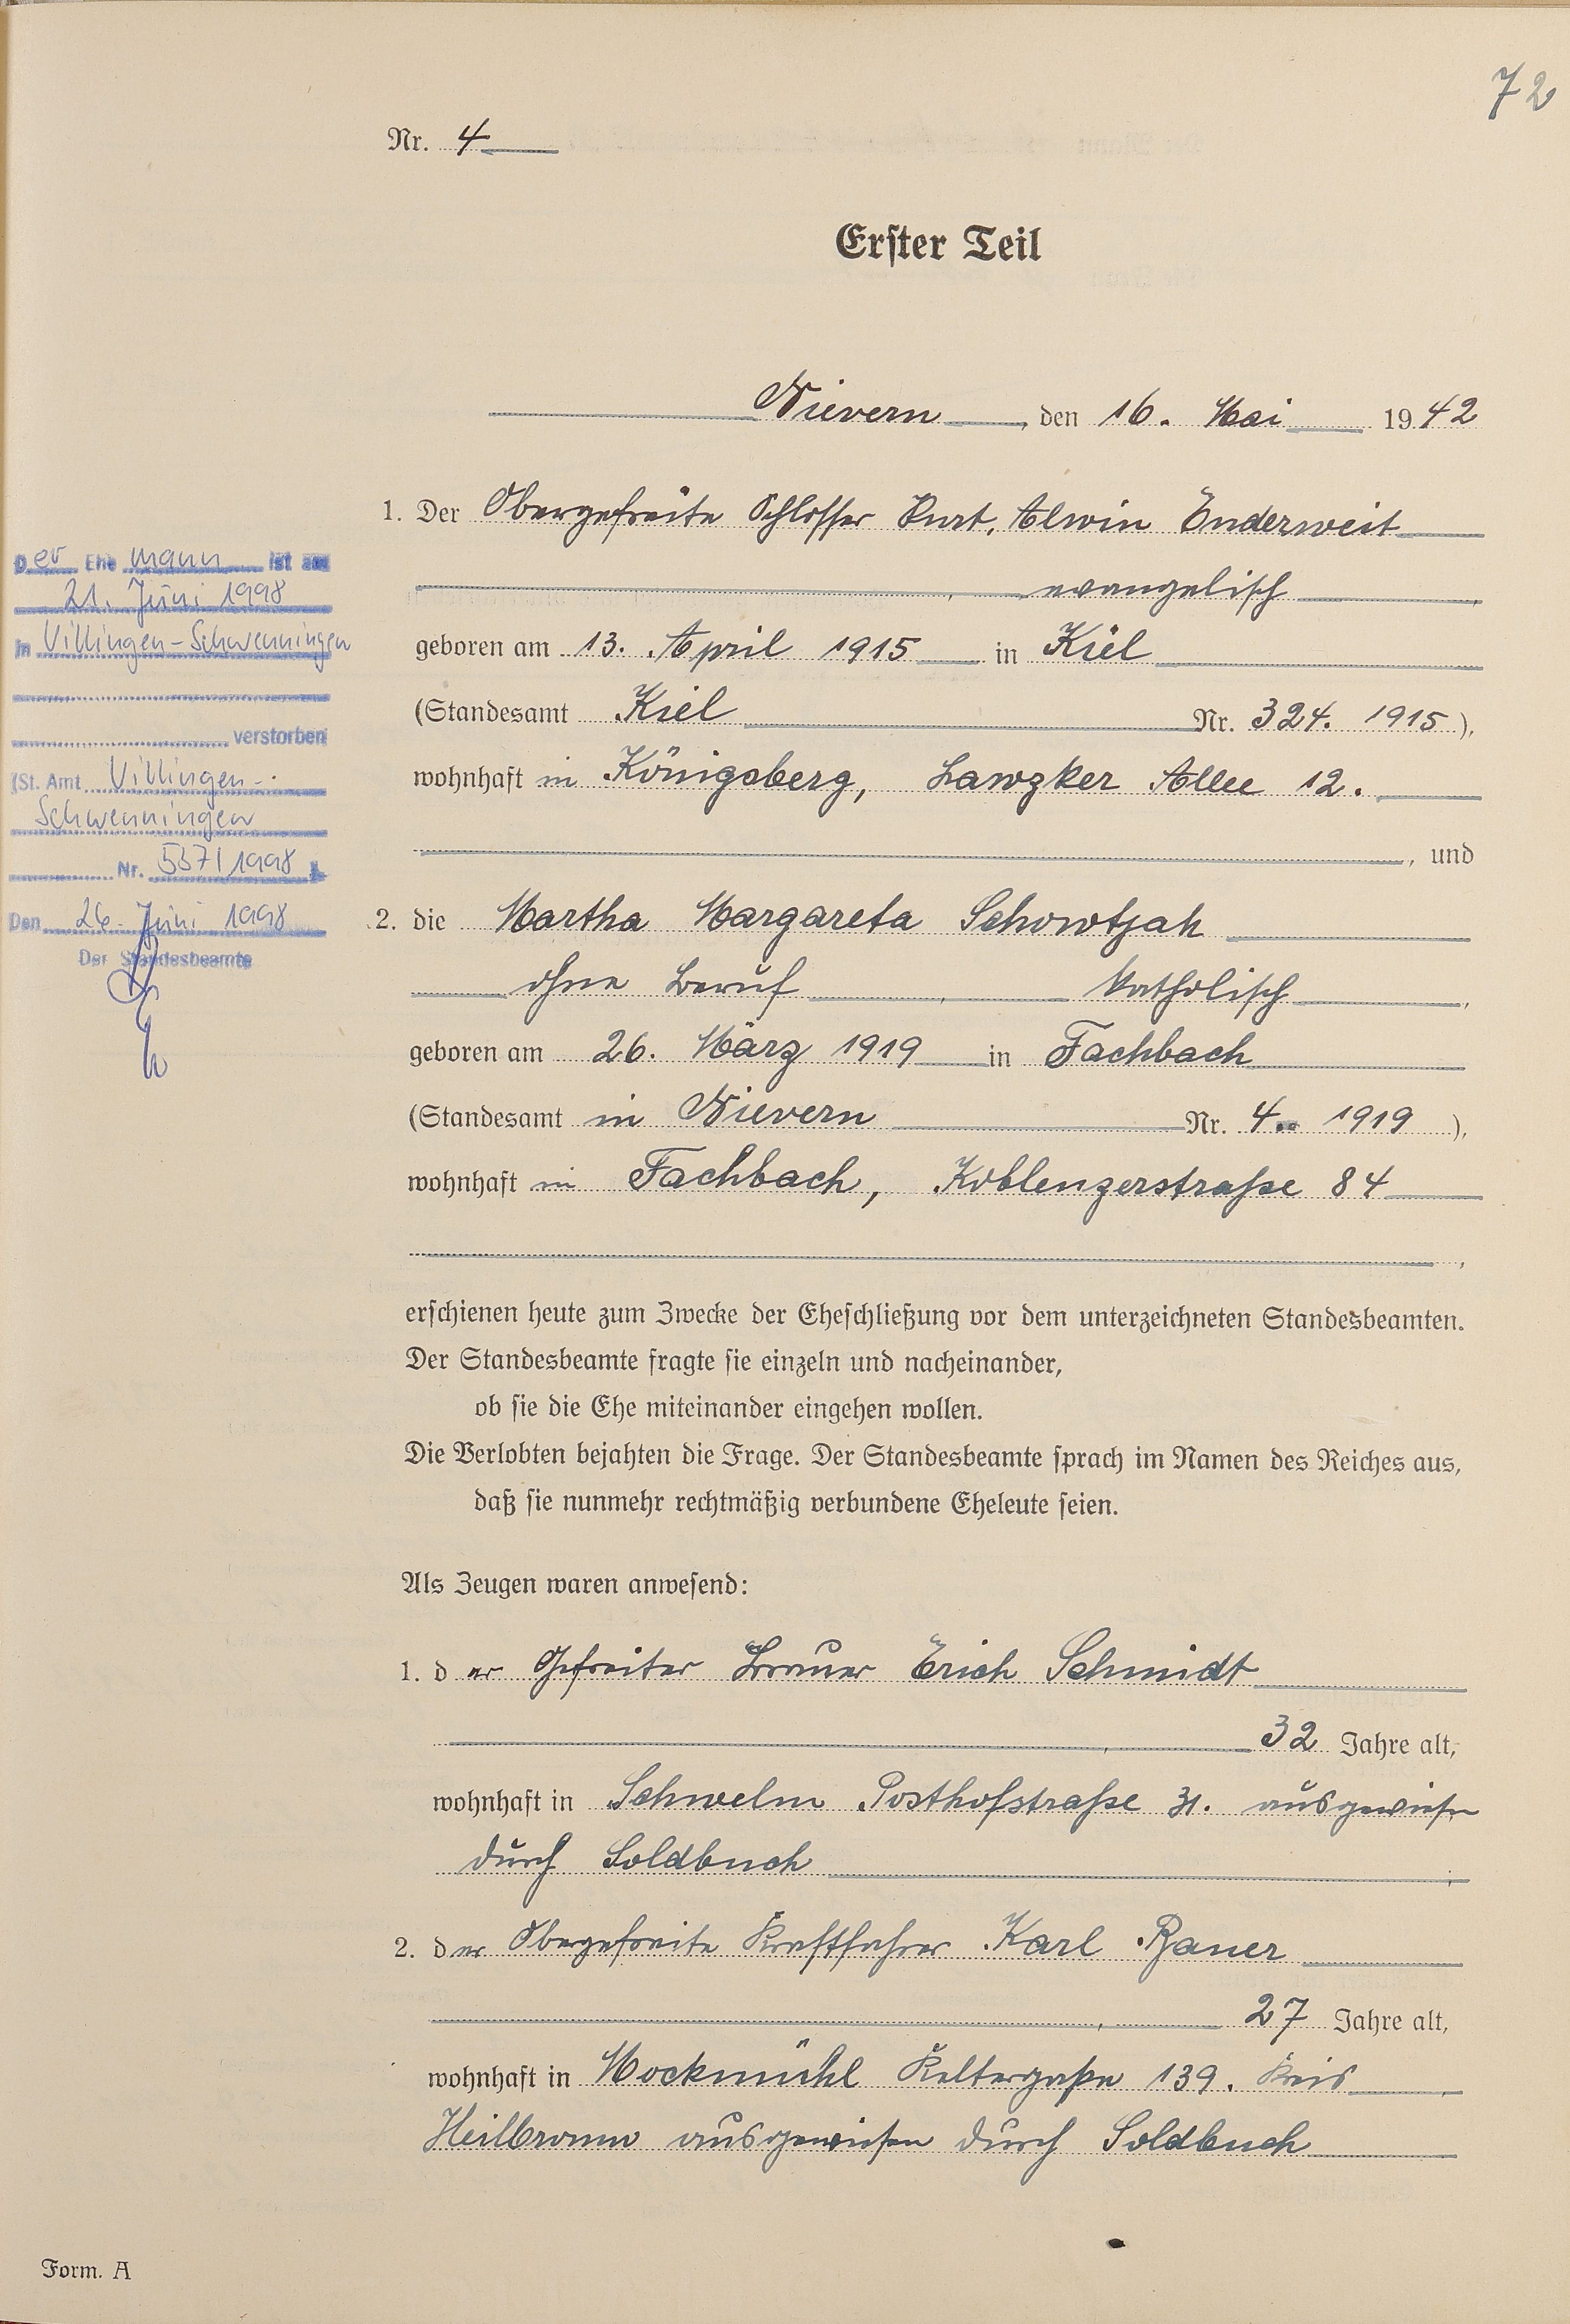 72
Nr. 4
Erster Teil
Nievern, den 16. Mai 1942
1. Der Obergefreite Schlosser Kurt, Alwin Enderweit
, evangelisch
geboren am 13. April 1915 in Kiel
(Standesamt Kiel Nr. 324. 1915),
wohnhaft in Königsberg, Lawzker Allee 12.
, und
2. die Martha Margareta Schowtjak
ohne Beruf, katholisch,
geboren am 26. März 1919 in Fachbach
(Standesamt in Nievern Nr. 4 1919),
wohnhaft in Fachbach, Koblenzerstraße 84
,
erschienen heute zum Zwecke der Eheschließung vor dem unterzeichneten Standesbeamten.
Der Standesbeamte fragte sie einzeln und nacheinander,
ob sie die Ehe miteinander eingehen wollen.
Die Verlobten bejahten die Frage. Der Standesbeamte sprach im Namen des Reiches aus,
daß sie nunmehr rechtmäßig verbundene Eheleute seien.
Als Zeugen waren anwesend:
1. der Gefreiter Erich Schmidt
, 32 Jahre alt,
wohnhaft in Schwelm Posthofstraße 31. ausgewiesen
durch Soldbuch
2. der Obergefreite Kraftfahrer Karl
, 27 Jahre alt,
wohnhaft in Mockmühl Keltergaße 139. Kreis
Heilbronn ausgewiesen durch Soldbuch
Form. A
Der Ehemann ist am
21. Juni 1998
in Villingen-Schwenningen
verstorben
(St. Amt Villingen-
Schwenningen
Nr. /1998 ).
Den 26. Juni 1998
Der Standesbeamte